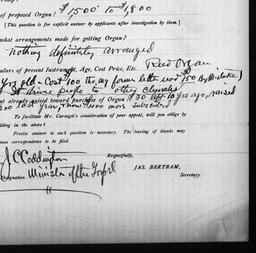 of proposed Organ? $1500 to $1,800
[This question is for explicit answer by applicants after investigation by them.]
what arrangements made for getting Organ?
Nothing definitely arranged
Reed Organ
ulars of present Instrument, Age, Cost Price, Etc.
yrs old - Cost $100 tho, my former letter said $150 By mistake
drives people to other churches
nt already raised toward purchase of Organ? $30 left 10 yrs ago, raised
200 last year, & now $400 more subscribed
To facilitate Mr. Carnegie's consideration of your appeal, will you oblige by
filling in the above?
Precise answer to each question is necessary. The leaving of blanks may
cause correspondence to be filed.
Respectfully,
J C Coddington
JAS. BERTRAM,
Secretary.
Designation Minister of the Gospel